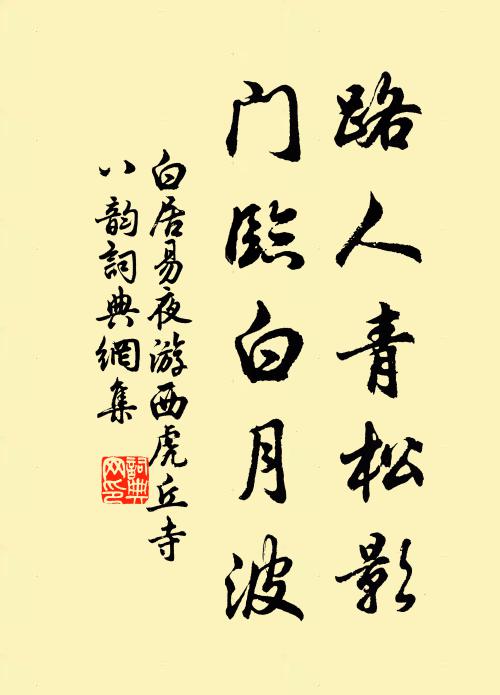 路人青松影
门臨白月波
白居易夜游西虎丘寺
八韵詞典網集
詞典
网印